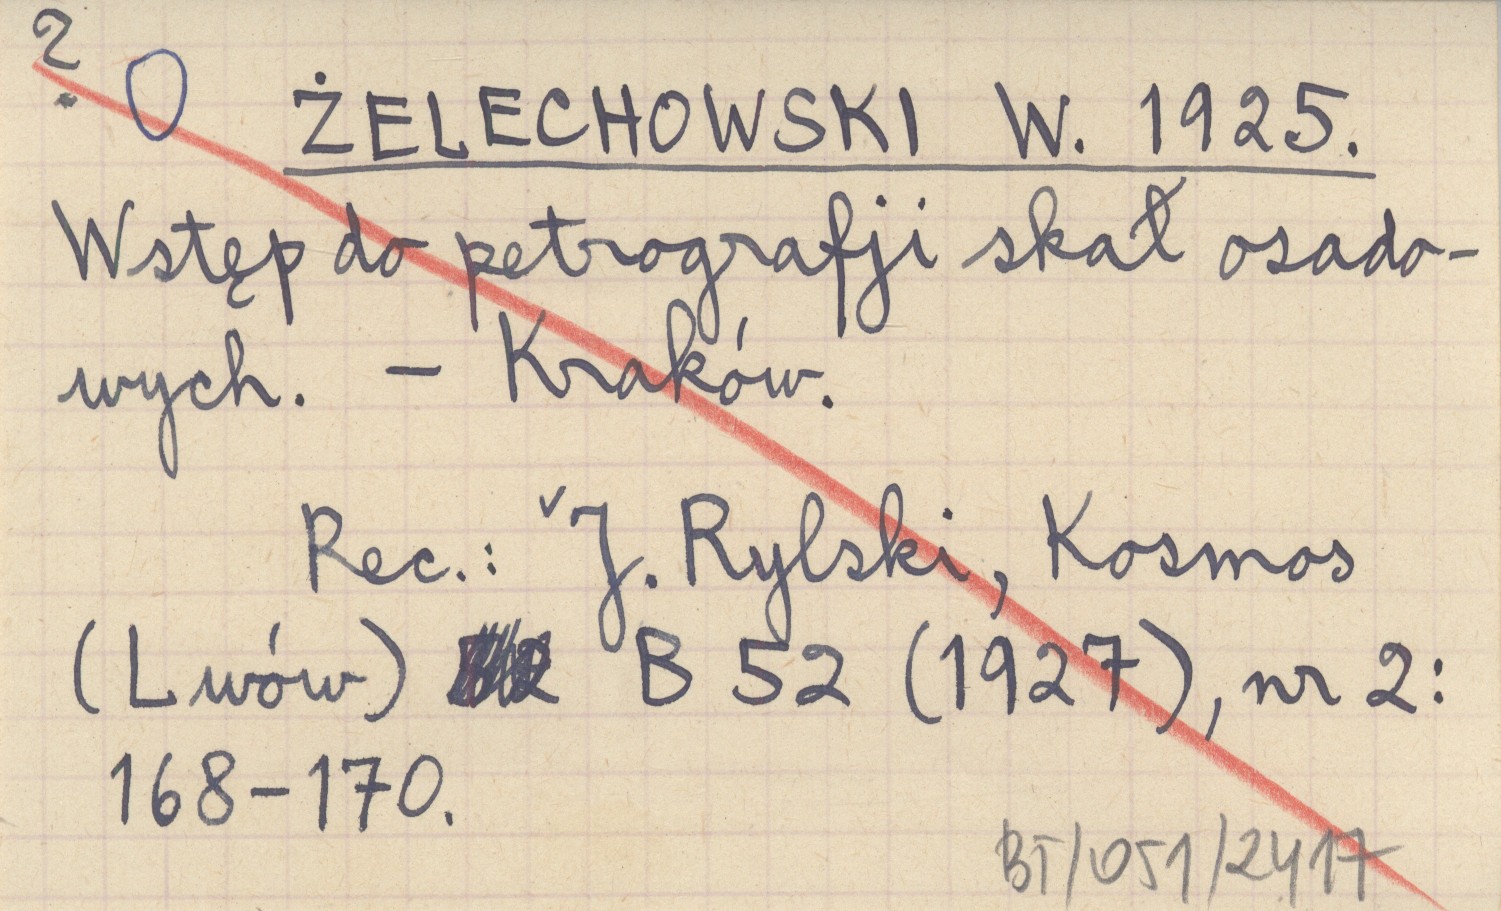 ? O ŻELECHOWSKI W. 1925.
Wstęp do petrografji skał osado-
wych. – Kraków.
Rec.: J. Rylski, Kosmos
(Lwów) B 52 (1927), nr 2:
168–170.
BT/051/2417